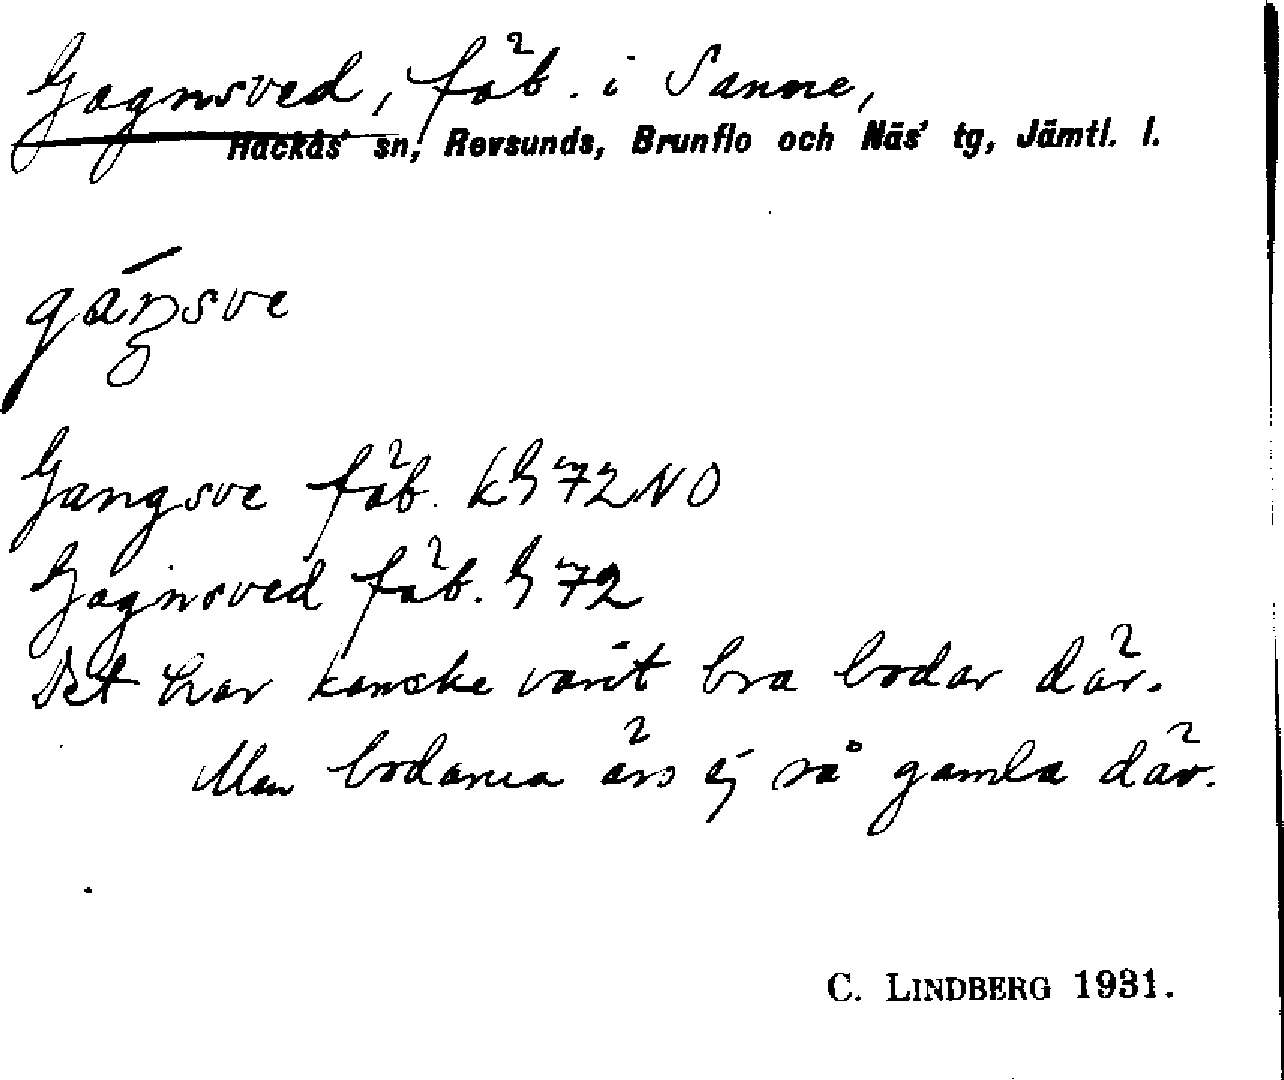 Gagnsved, fäb. i Sanne,
Hackås sn, Revsunds, Brunflo och Näs' tg, Jämtl. l.
gáŋsve
Gangsve fäb. kg 72 NO
Gagnsved fäb. g 72
Det har kanske varit bra bodar där.
Men bodarna äro ej så gamla där.
C. LINDBERG 1931.